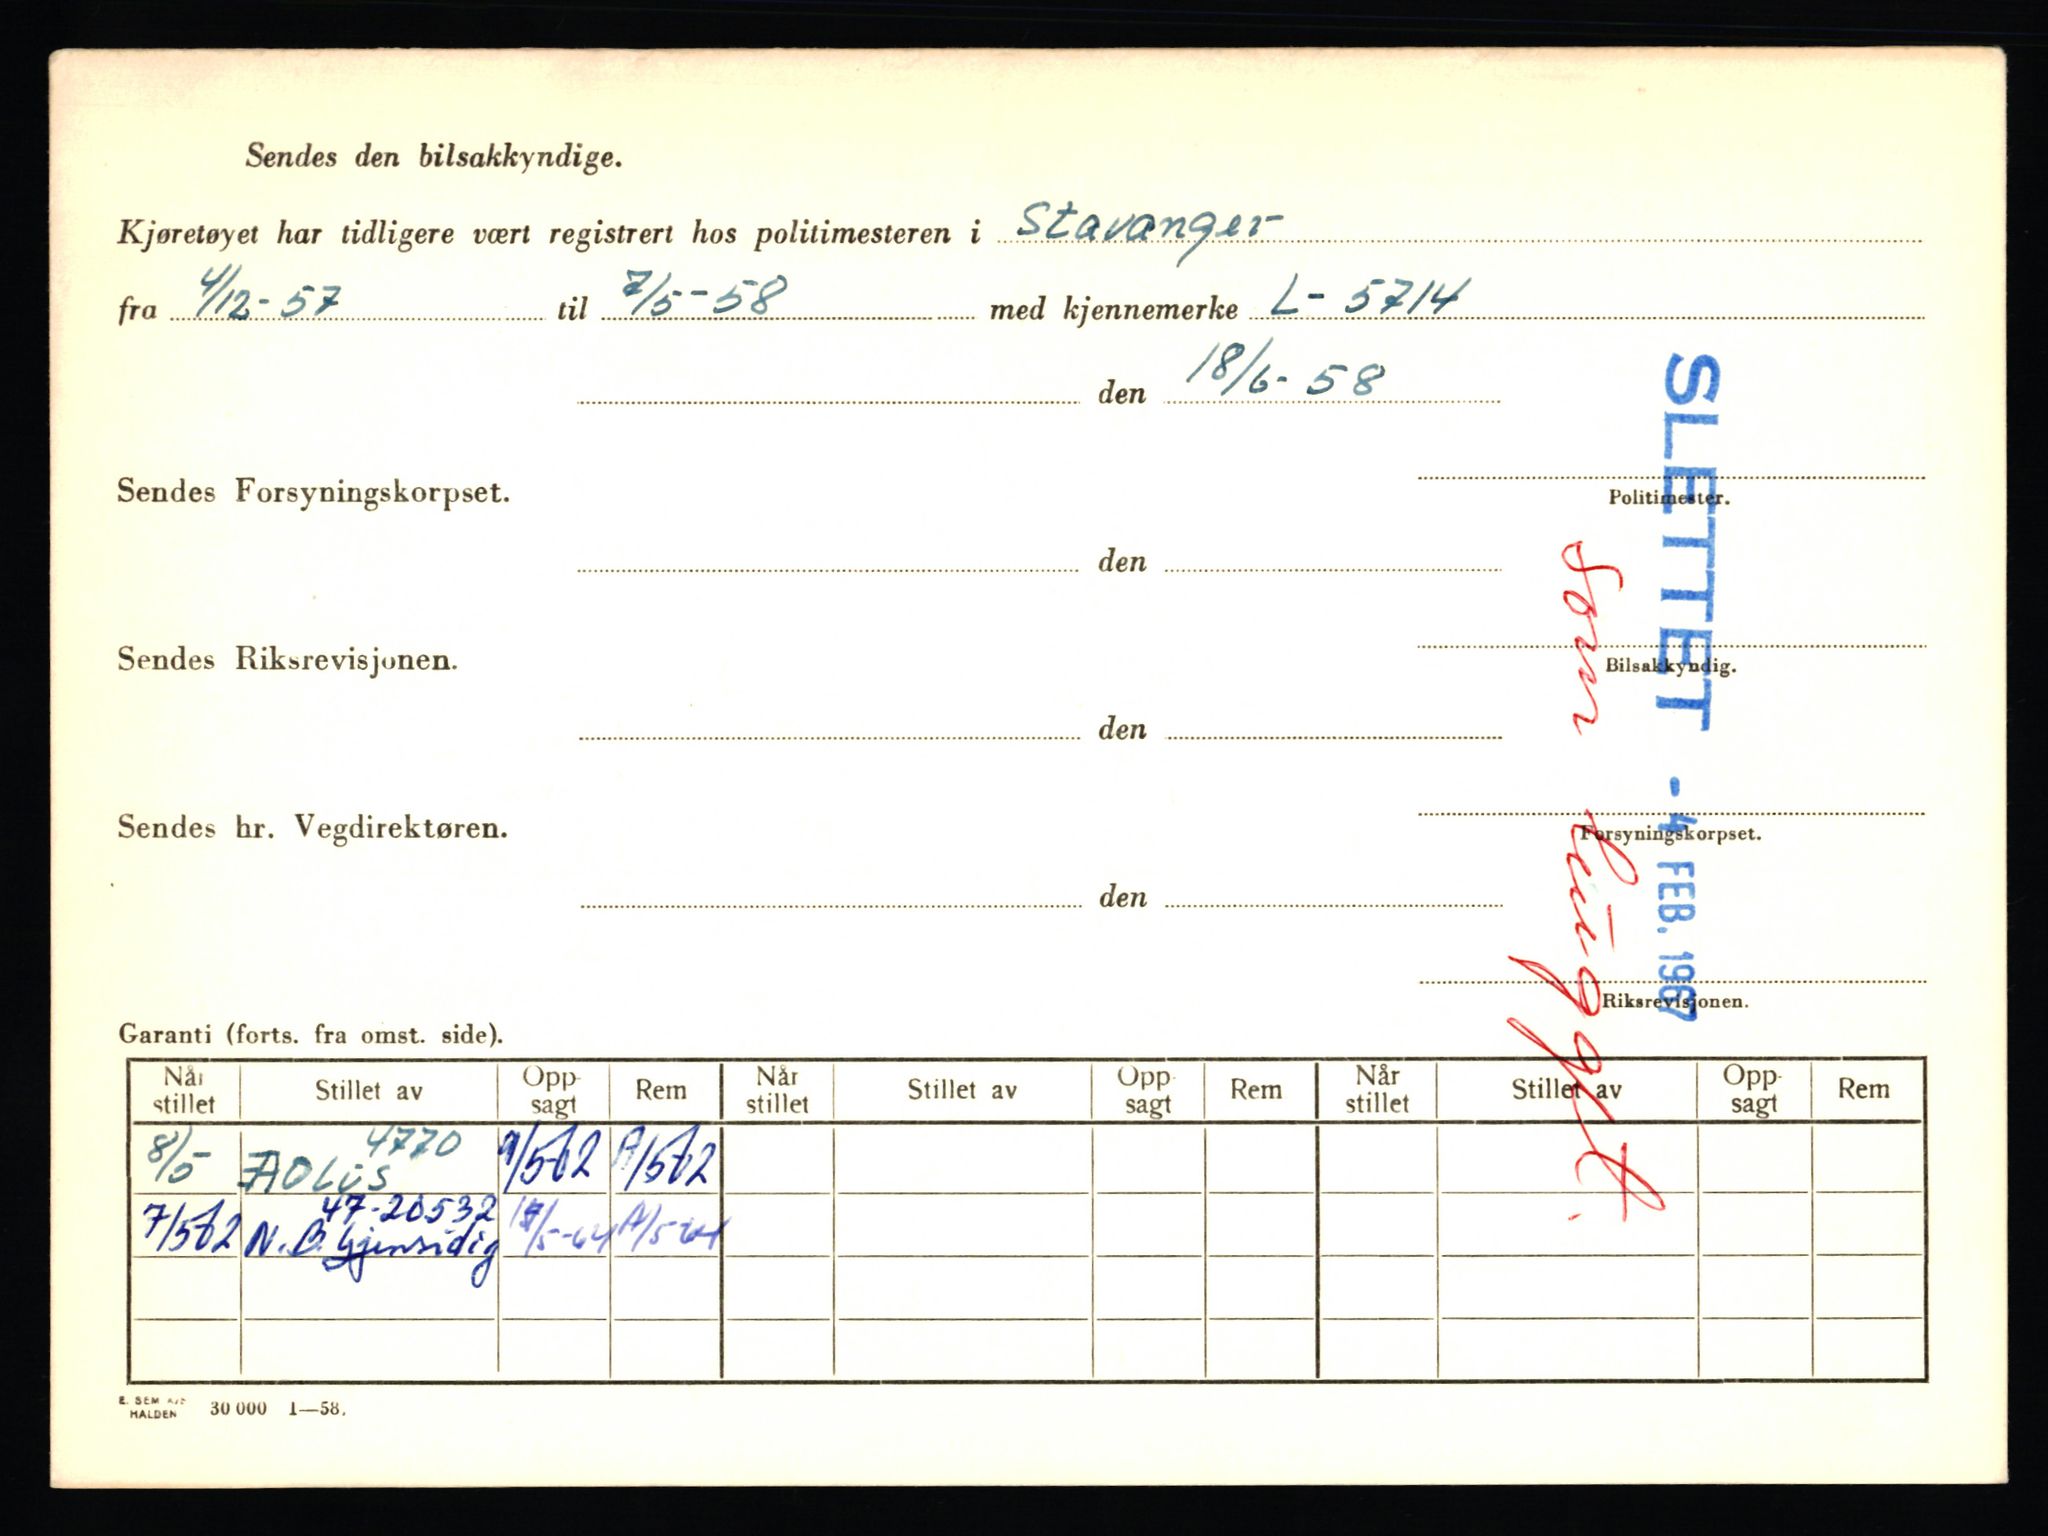 Sendes den bilsakkyndige.
Kjøretøyet har tidligere vært registrert hos politimesteren i Stavanger
fra 4/12-57 til 7/5-58 med kjennemerke L-5714
den 18/6-58
Politimester.
Sendes Forsyningskorpset.
den
Bilsakkyndig.
Sendes Riksrevisjonen.
den
Forsyningskorpset.
Sendes hr. Vegdirektøren.
den
Riksrevisjonen.
SLETTET -4 FEB. 1967
Som
Garanti (forts. fra omst. side).
Når stillet Stillet av Opp-sagt Rem Når stillet Stillet av Opp-sagt Rem Når stillet Stillet av Opp-sagt Rem
4770
8/5
47-20532
7/562 N.B. Gjensidig
E. SEM A/S
HALDEN 30 000 1—58.